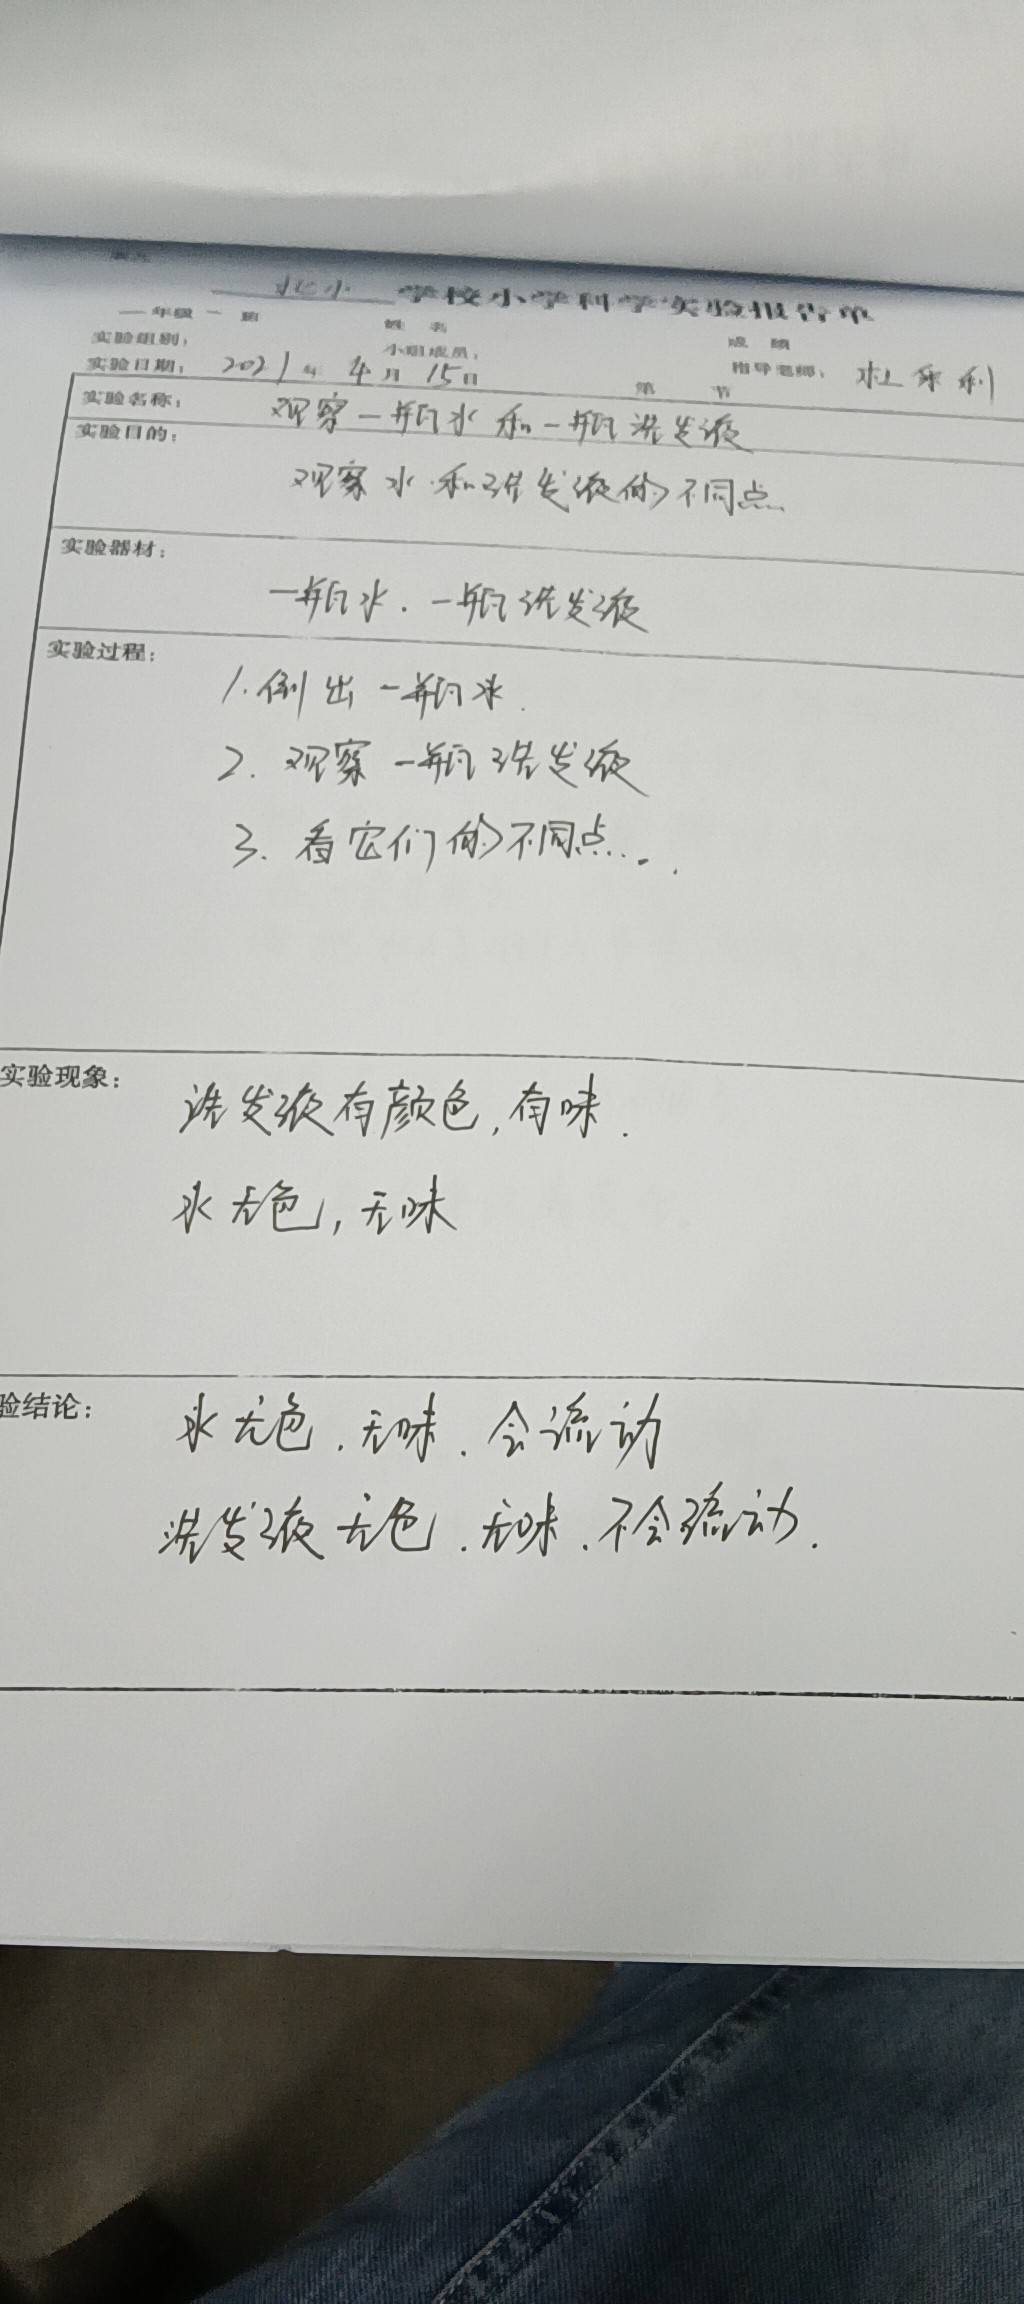 北小 学校小学科学实验报告单
一年级 一 班 姓 名 成 绩
实验组别： 小组成员： 指导老师： 杜乐利
实验日期： 2021年 4月 15日 第 节
实验名称： 观察一瓶水和一瓶洗发液
实验目的：
观察水和洗发液的不同点.
实验器材：
一瓶水. 一瓶洗发液
实验过程：
1. 倒出一瓶水.
2. 观察一瓶洗发液
3. 看它们的不同点....
实验现象： 洗发液有颜色, 有味.
水无色, 无味
验结论： 水无色. 无味. 会流动
洗发液无色. 无味. 不会流动.